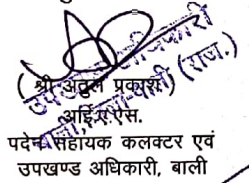 उपखण्ड अधिकारी
बाली, जिला-पाली (राज.)
( श्री अतुल प्रकाश )
आई.ए.एस.
पदेन सहायक कलक्टर एवं
उपखण्ड अधिकारी, बाली